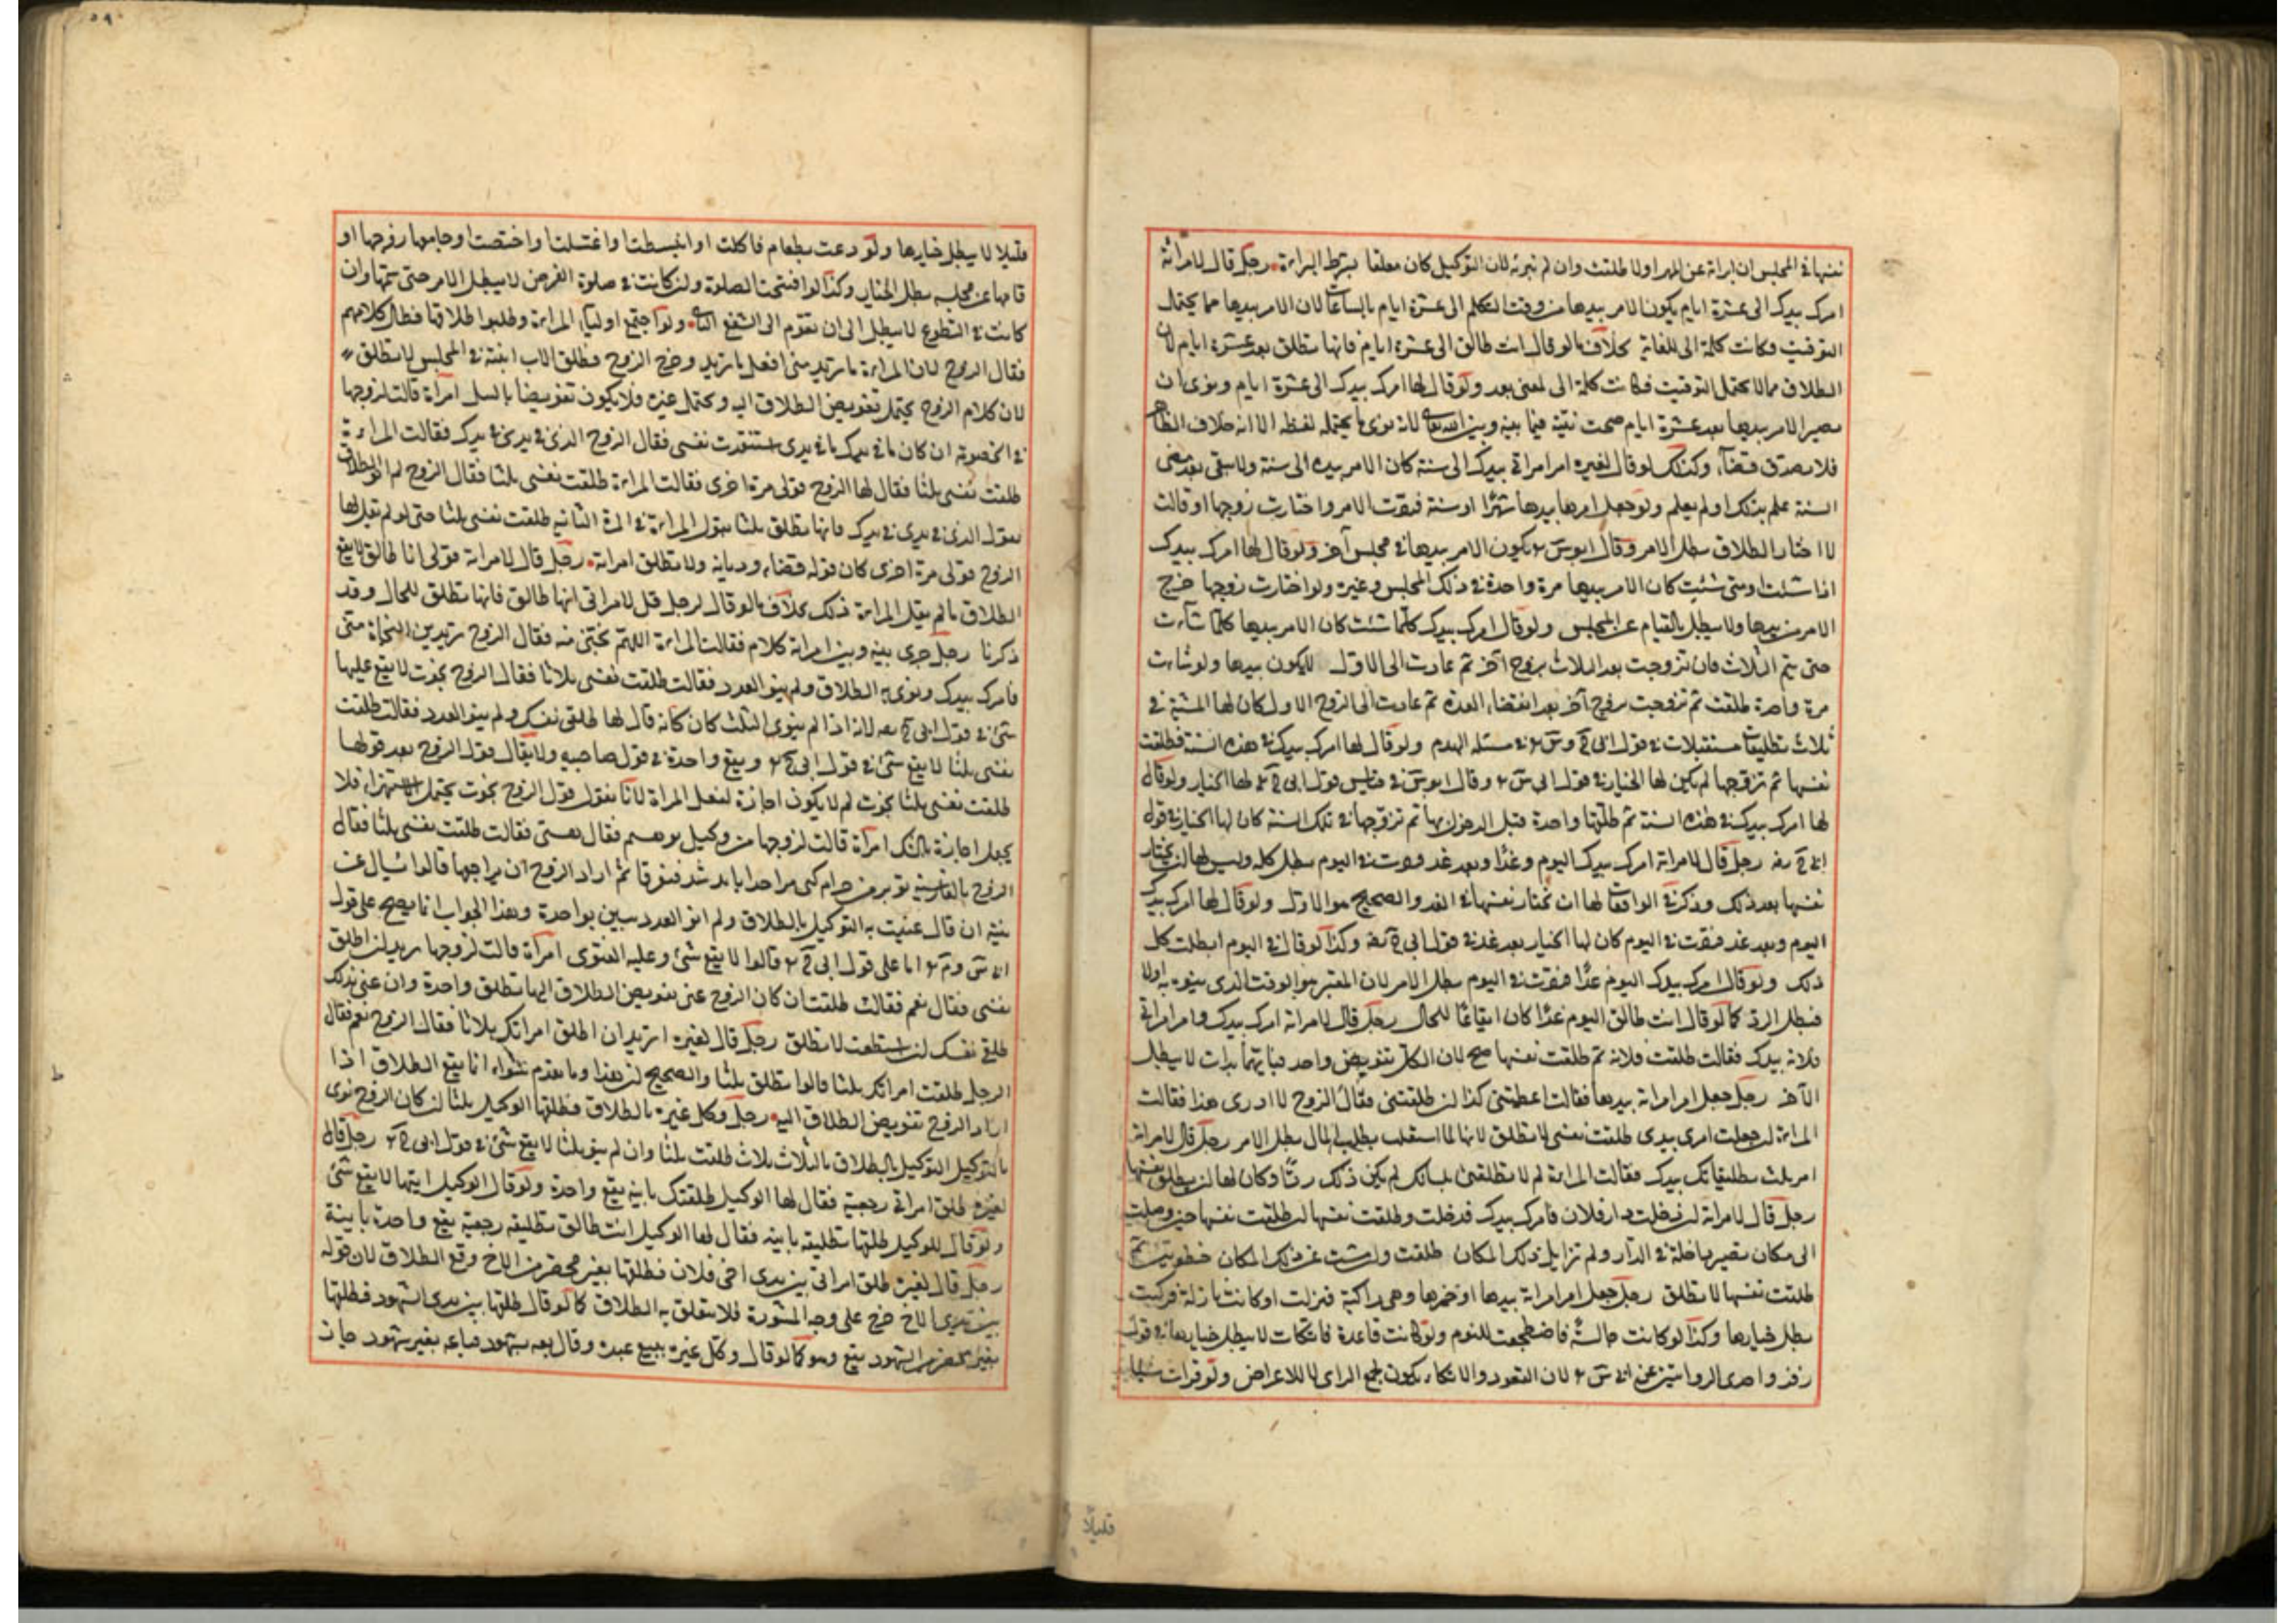 نفسها في المجلس ان ابراته عن المهر اولا طلقت وان لم تبرئه لان التوكيل كان معلقا بشرط البراءة رجل قال لامراته
امرك بيدك الى عشرة ايام يكون الامر بيدها من وقت التكلم الى عشرة ايام بالساعات لان الامر بيدها مما يحتمل
التوقيت فكانت كلمة الى للغاية بخلاف ما لو قال انت طالق الى عشرة ايام فانها تطلق بعد عشرة ايام لان
الطلاق مما لا يحتمل التوقيت فكانت كلمة الى لمعنى بعد ولو قال لها امرك بيدك الى عشرة ايام ونوى ان
يصير الامر بيدها بعد عشرة ايام صحت نيته فيما بينه وبين الله تعا لانه نوى ما يحتمله لفظه الا انه خلاف الظاهر
فلا يصدق قضآء وكذلك لو قال لغيره امر امراتي بيدك الى سنة كان الامر بيده الى سنة ولا يبقى بعد مضى
السنة علم بذلك او لم يعلم ولو جعل امرها بيدها شهرًا او سنة فردت الامر واختارت زوجها او قالت
لا اختار الطلاق بطل الامر وقال ابو س يكون الامر بيدها في مجلس آخر ولو قال لها امرك بيدك
اذا شئت او متى شئت كان الامر بيدها مرة واحدة في ذلك المجلس وغيره ولو اختارت زوجها خرج
الامر من يدها ولا يبطل بالقيام عن المجلس ولو قال امرك بيدك كلما شئت كان الامر بيدها كلما شآءت
حتى يتم الثلاث فان تزوجت بعد الثلاث بزوج آخر ثم عادت الى الاول لا يكون بيدها ولو شاءت
مرة واحدة طلقت ثم تزوجت بزوج آخر بعد انقضاء العدة ثم عادت الى الزوج الاول كان لها المشية في
ثلاث تطليقات مستقبلات في قول ابي ح وس في مسئلة الهدم ولو قال لها امرك بيدك في هذه السنة فطلقت
نفسها ثم تزوجها لم يكن لها الخيار في قول ابي س وقال ابو س في قياس قول ابي ح لها الخيار ولو قال
لها امرك بيدك في هذه السنة ثم طلقها واحدة قبل الدخول بها ثم تزوجها في تلك السنة كان لها الخيار في قول
ابي ح رجل قال لامراته امرك بيدك اليوم وغدًا وبعد غد فردت في اليوم بطل كله وليس لها ان تختار
نفسها بعد ذلك وذكر في الواقعات لها ان تختار نفسها في الغد والصحيح هو الاول ولو قال لها امرك بيدك
اليوم وبعد غد فردت في اليوم كان لها الخيار بعد غد في قول ابي ح وكذا لو قال في اليوم ابطلت كل
ذلك ولو قال امرك بيدك اليوم غدًا فردت في اليوم بطل الامر لان المعتبر هو الوقت الذي ينوه به اولا
فبطل الرد كما لو قال انت طالق اليوم غدًا كان ايقاعًا للحال رجل قال لامراته امرك بيدك وامر امراتي
فلانه بيدك فقالت طلقت فلانه ثم طلقت نفسها صح لان الكل تفويض واحد فبايهما بدات لا يبطل
الآخر رجل جعل امر امراته بيدها فقالت اعطيتني كذا ان طلقتني فقال الزوج لا ادري هذا فقالت
المراة ان جعلت امري بيدي طلقت نفسي لا تطلق لانها لما اشتغلت بطلب المال بطل الامر رجل قال لامراته
امر ثلث تطليقاتك بيدك فقالت المراة لم لا تطلقني بلسانك لم يكن ذلك ردًا وكان لها ان تطلق نفسها
رجل قال لامراته ان دخلت دار فلان فامرك بيدك فدخلت وطلقت نفسها ان طلقت نفسها حين وصلت
الى مكان تصير داخلة في الدار ولم تزايل ذلك المكان طلقت وان مشت عن ذلك المكان خطوتين ثم
طلقت نفسها لا تطلق رجل جعل امر امراته بيدها او خيرها وهي راكبة فنزلت او كانت نازلة فركبت
بطل خيارها وكذا لو كانت جالسة فاضطجعت للنوم ولو كانت قاعدة فاتكات لا يبطل خيارها في قول
زفر واحدى الروايتين عن ابي س لان القعود والاتكاء يكون لجمع الراي لا للاعراض ولو قرات شيئا
قليلا
قليلا لا يبطل خيارها ولو دعت بطعام فاكلت او انبسطت او اغتسلت او اختضبت او جامعها زوجها او
قامها عن مجلسه بطل الخيار وكذا لو افتتحت الصلوة وان كانت في صلوة الفرض لا يبطل الامر حتى تتمها وان
كانت في التطوع لا يبطل الى ان تقوم الى الشفع الثاني ولو اجتمع اوليآء المراة وطلبوا طلاقها فطال كلامهم
فقال الزوج لاب المراة ما تريد مني افعل ما تريد وخرج الزوج فطلق الاب ابنته في المجلس لا تطلق
لان كلام الزوج يحتمل تفويض الطلاق اليه ويحتمل غيره فلا يكون تفويضا بالشك امرآة قالت لزوجها
في الخصومة ان كان ما في يدك ما في يدي استنقذت نفسي فقال الزوج الذي في يدي في يدك فقالت المراة
طلقت نفسي ثلثا فقال لها الزوج قولي مرة اخرى فقالت المراة طلقت نفسي ثلثا فقال الزوج لم انو الطلاق
بقول الذي في يدي في يدك فانها تطلق ثلثا بقول المراة في المرة الثانيه طلقت نفسي ثلثا حتى لو لم يقل لها
الزوج قولي مرة اخرى كان قوله قضاء وديانة ولا تطلق امراته رجل قال لامراته قولي انا طالق لا يقع
الطلاق ما لم تقل المراة ذلك بخلاف ما لو قال لرجل قل لامراتي انها طالق فانها تطلق للحال وقد
ذكرنا رجل جرى بينه وبين امراته كلام فقالت المراة اللهم نجني منه فقال الزوج تريدين النجاة مني
فامرك بيدك ونوى به الطلاق ولم ينو العدد فقالت طلقت نفسي ثلاثا فقال الزوج نجوت لا يقع عليها
شئ في قول ابي ح لانه اذا لم ينوى الثلث كان كانه قال لها طلقي نفسك ولم ينو العدد فقالت طلقت
نفسي ثلثا لا يقع شئ في قول ابي ح ويقع واحدة في قول صاحبيه ولا يقال قول الزوج بعد قولها
طلقت نفسي ثلثا نجوت لم لا يكون اجازة لفعل المراة لانا نقول قول الزوج نجوت يحتمل الاستهزاء فلا
يجعل اجازة بالشك امرآة قالت لزوجها من وكيل تو هستم فقال هستي فقالت طلقت نفسي ثلثا فقال
الزوج بالفارسية تو بر من حرام كشتى مرا جدا بايد شد فتفرقا ثم اراد الزوج ان يراجعها قالوا يسال عن
نيته ان قال عنيت به التوكيل بالطلاق ولم انو العدد تبين بواحدة وهذا الجواب انما يصح على قول
ابي س وم اما على قول ابي ح قالوا لا يقع شئ وعليه الفتوى امرآة قالت لزوجها تريد ان اطلق
نفسي فقال نعم فقالت طلقت ان كان الزوج عنى تفويض الطلاق اليها تطلق واحدة وان عنى بذلك
طلقي نفسك ان استطعت لا تطلق رجل قال لغيره اتريد ان اطلق امراتك ثلاثا فقال الزوج نعم فقال
الرجل طلقت امراتك ثلثا قالوا تطلق ثلثا والصحيح ان هذا وما تقدم سواء انما يقع الطلاق اذا
اراد الزوج تفويض الطلاق اليه رجل وكل غيره بالطلاق فطلقها الوكيل ثلثا ان كان الزوج نوى
بالتوكيل التوكيل بالطلاق بالثلاث ثلاث طلقت ثلثا وان لم ينو ثلثا لا يقع شئ في قول ابي ح رجل قال
لغيره طلق امراتي رجعية فقال لها الوكيل طلقتك باينه يقع واحدة ولو قال الوكيل ابنتها لا يقع شئ
ولو قال للوكيل طلقها تطليقه باينه فقال لها الوكيل انت طالق تطليقه رجعية يقع واحدة باينة
رجل قال لغيره طلق امراتي بين يدي اخي فلان فطلقها بغير محضر من الاخ وقع الطلاق لان قوله
بين يدي الاخ خرج على وجه المشورة فلا يتعلق به الطلاق كما لو قال طلقها بين يدي الشهود فطلقها
بغير محضر من الشهود يقع وهو كما لو قال وكل غيره ببيع عبده وقال بعه بشهود فباعه بغير شهود جاز